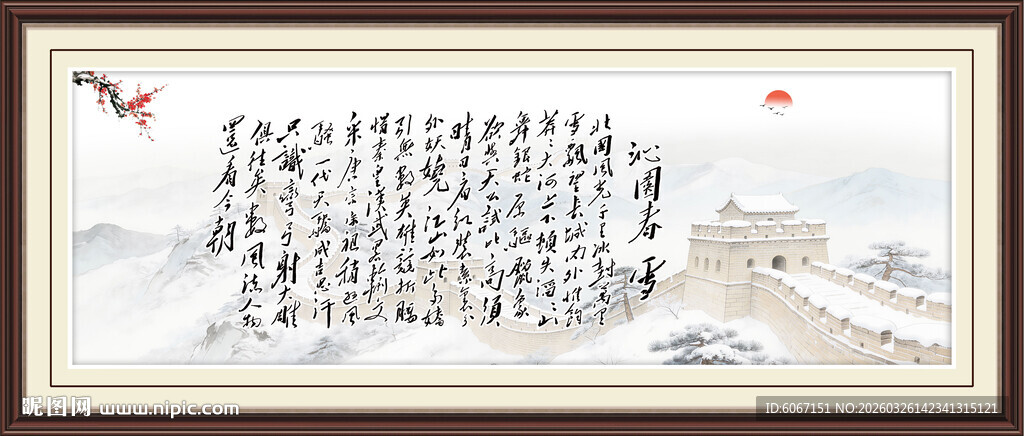 沁園春 雪
北国风光千里冰封萬里
雪飄望长城内外惟余
莽莽大河上下顿失滔滔山
舞銀蛇原驅臘象
欲與天公試比高須
晴日看红装素裹分
外妖娆江山如此多嬌
引無數英雄競折腰
惜秦皇漢武略輸文
采唐宗宋祖稍逊风
骚一代天驕成吉思汗
只識彎弓射大雕
俱往矣數風流人物
還看今朝
昵图网 www.nipic.com
ID:6067151 NO:20260326142341315121